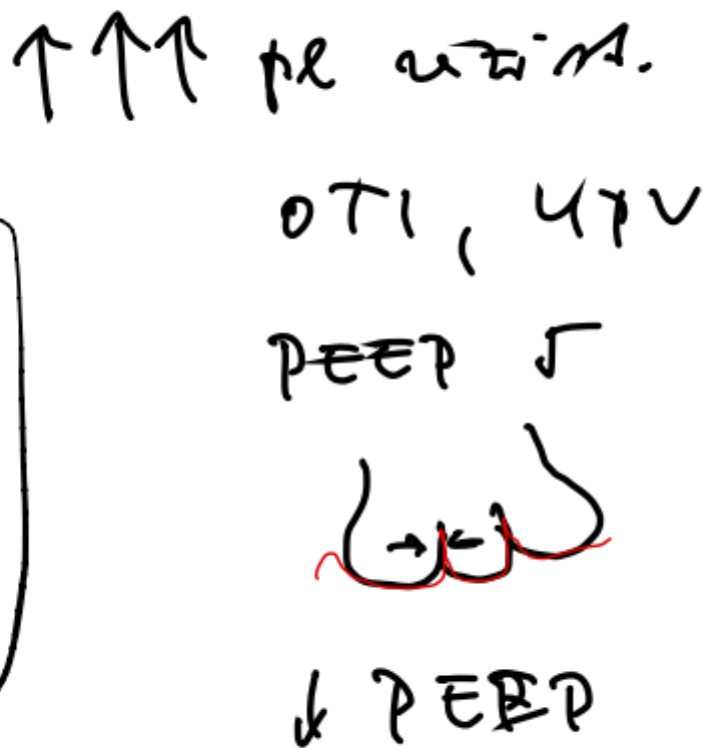 ↑↑↑ pl
OTI, UPV
PEEP 5
↓ PEEP